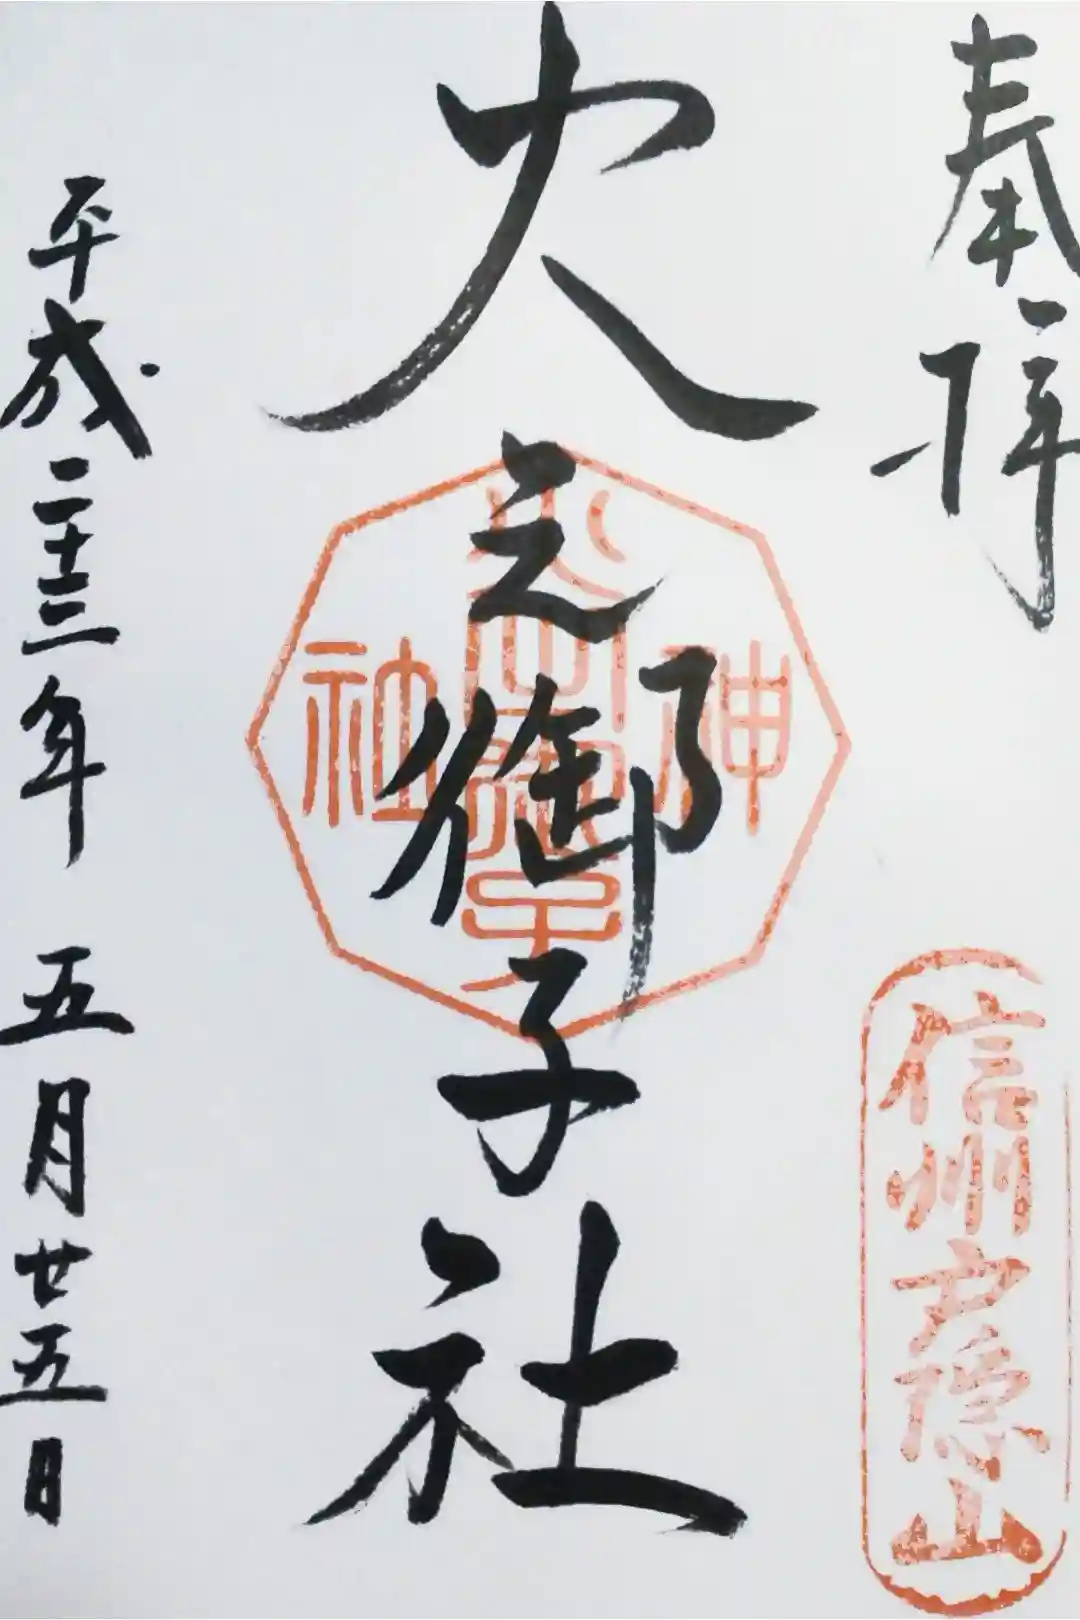 奉拝
信州戸隠山
火之御子社
神
火之御子
社
平成二十三年 五月廿五日